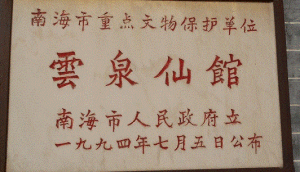 南海市重点文物保护单位
雲泉仙館
南海市人民政府立
一九九四年七月五日公布